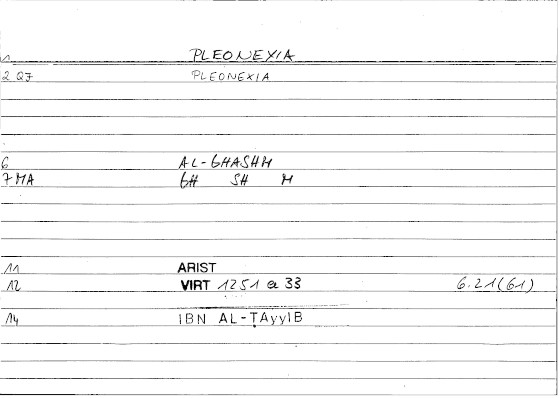 1 PLEONEXIA
2 Q7 PLEONEXIA
6 AL-GHASHM
7 MA GH SH M
11 ARIST
12 VIRT 1251 a 33 6.21(61)
14 IBN AL-ṬAyyIB